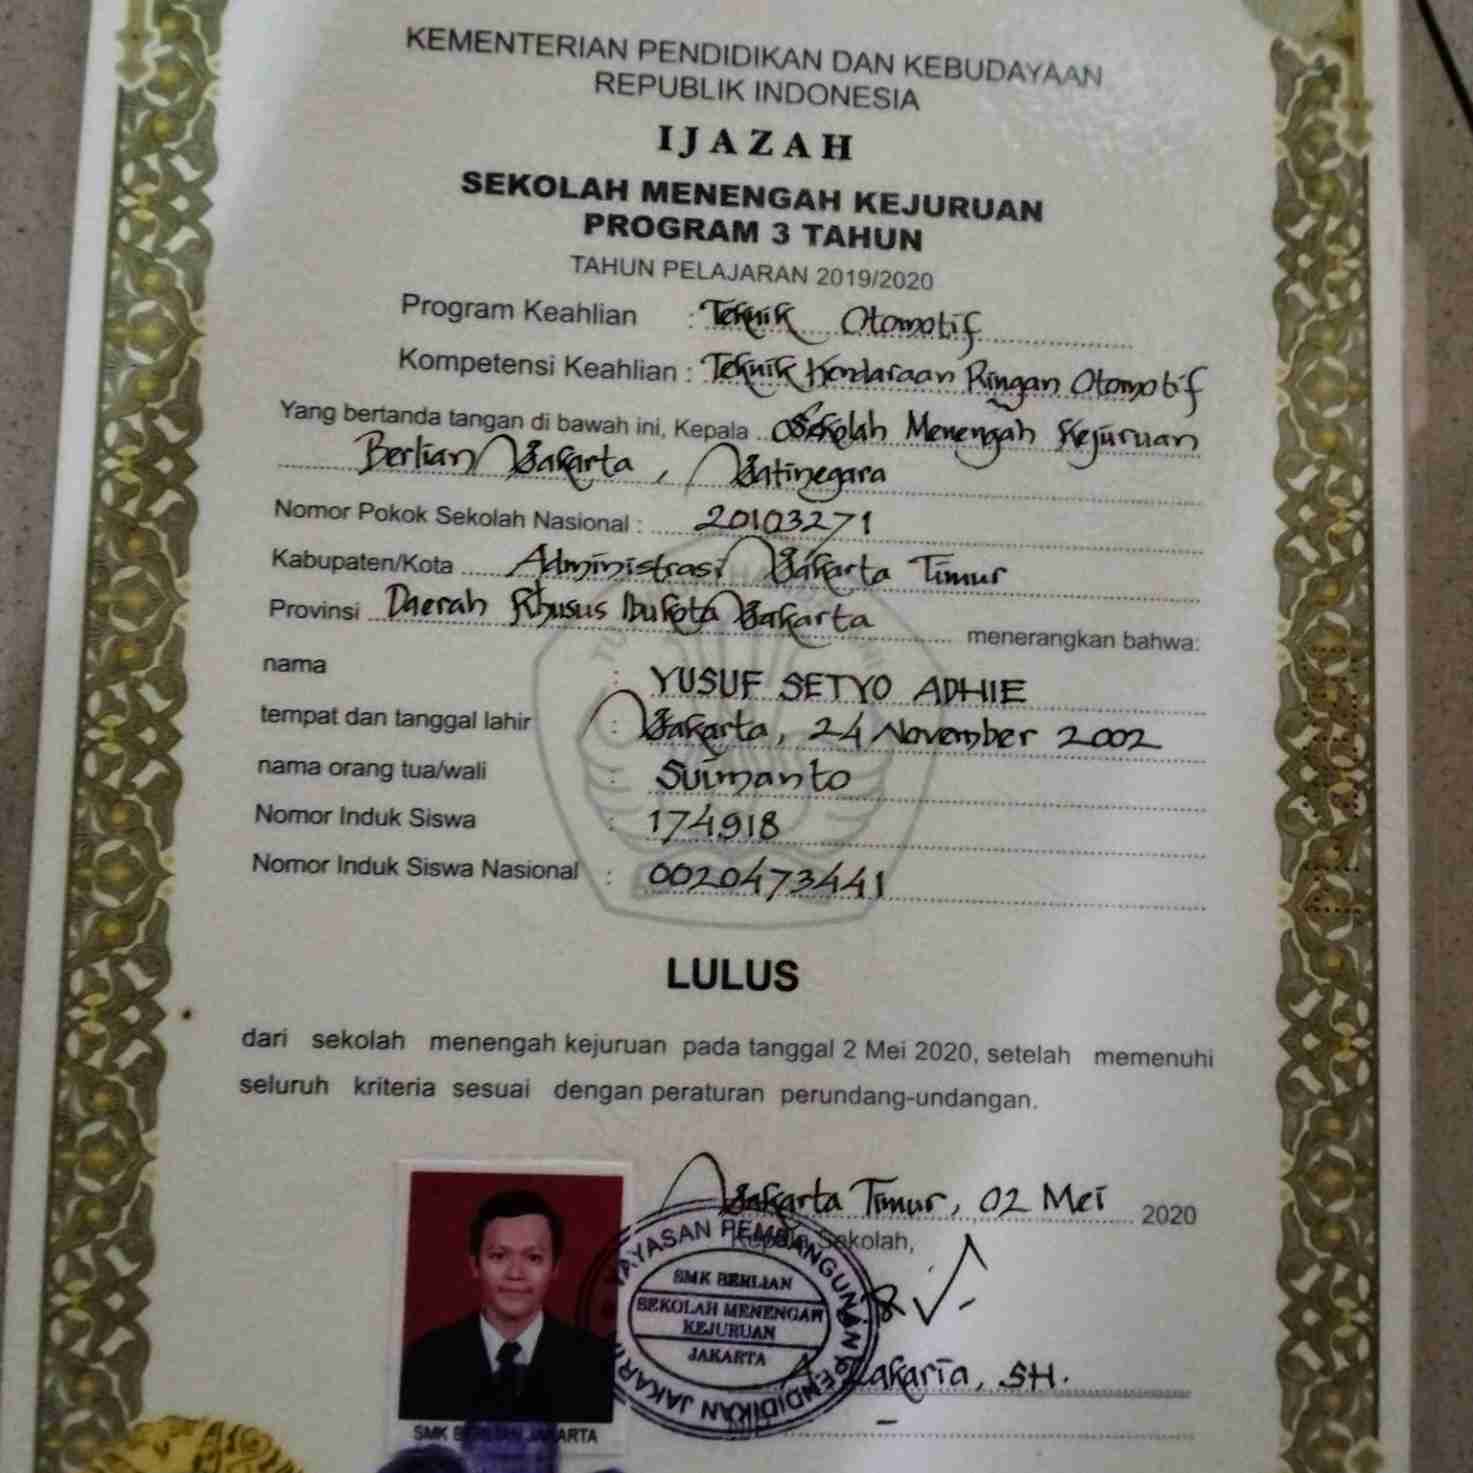 KEMENTERIAN PENDIDIKAN DAN KEBUDAYAAN
REPUBLIK INDONESIA
IJAZAH
SEKOLAH MENENGAH KEJURUAN
PROGRAM 3 TAHUN
TAHUN PELAJARAN 2019/2020
Program Keahlian : Teknik Otomotif
Kompetensi Keahlian : Teknik Kendaraan Ringan Otomotif
Yang bertanda tangan di bawah ini, Kepala Sekolah Menengah Kejuruan
Berlian Jakarta, Jatinegara
Nomor Pokok Sekolah Nasional : 20103271
Kabupaten/Kota Administrasi Jakarta Timur
Provinsi Daerah Khusus Ibukota Jakarta menerangkan bahwa:
nama : YUSUF SETYO ADHIE
tempat dan tanggal lahir : Jakarta, 24 November 2002
nama orang tua/wali : Suimanto
Nomor Induk Siswa : 174918
Nomor Induk Siswa Nasional : 0020473441
LULUS
dari sekolah menengah kejuruan pada tanggal 2 Mei 2020, setelah memenuhi
seluruh kriteria sesuai dengan peraturan perundang-undangan.
Jakarta Timur, 02 Mei 2020
Kepala Sekolah,
YAYASAN PEMBANGUNAN PENDIDIKAN JAKARTA
SMK BERLIAN
SEKOLAH MENENGAH
KEJURUAN
JAKARTA
Zakaria, SH.
SMK BERLIAN JAKARTA